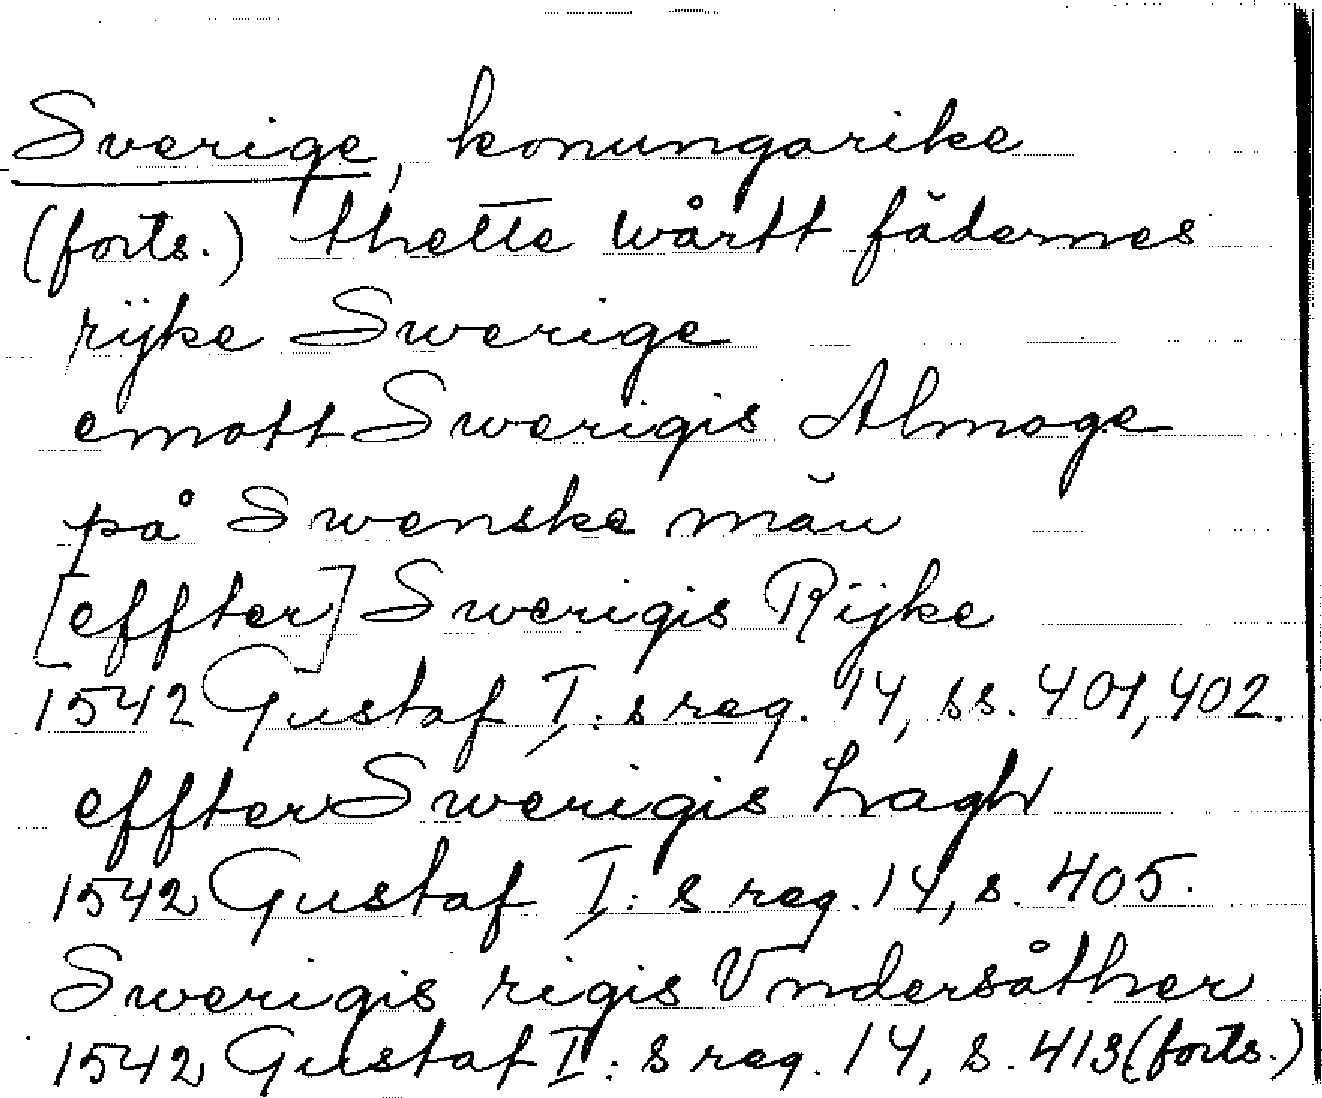 Sverige, konungarike
(forts.) thette wårtt fädernes
rijke Swerige
emott Swerigis Almoge
på Swenske män
[effter] Swerigis Rijke
1542 Gustaf I:s reg. 14, ss. 401, 402.
effter Swerigis Lagh
1542 Gustaf I:s reg. 14, s. 405.
Swerigis rigis Vndersåther
1542 Gustaf I:s reg. 14, s. 413 (forts.)